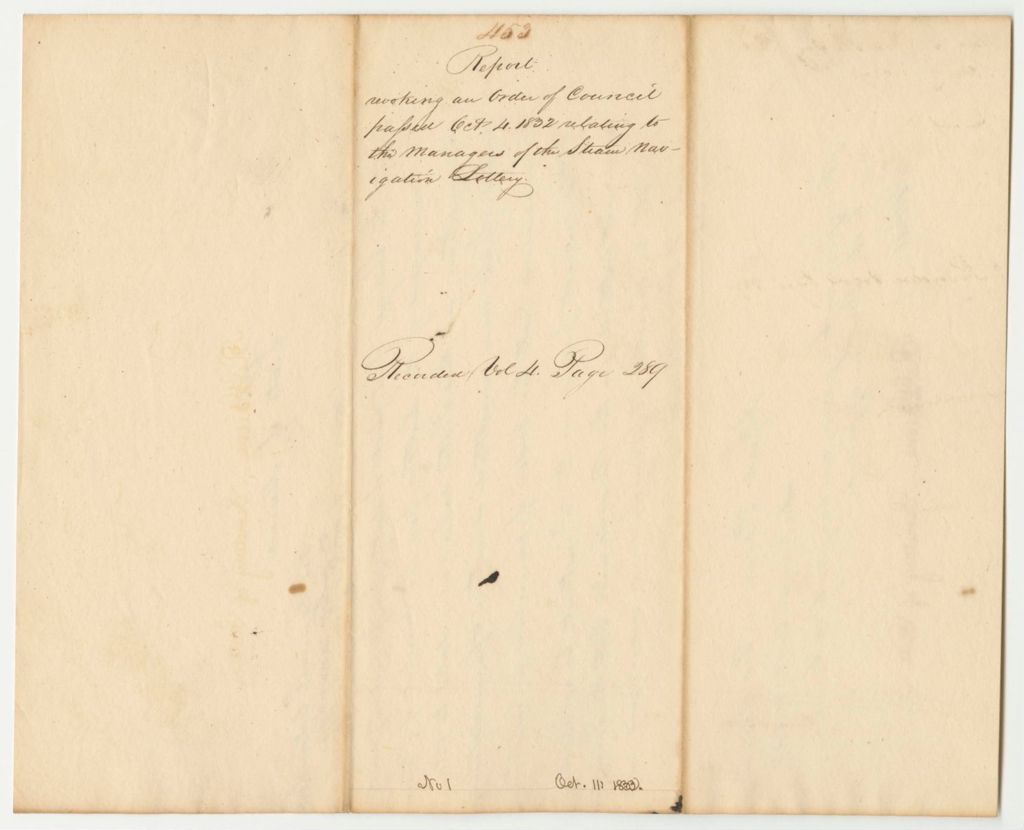 453
Report
revoking an Order of Council
passed Oct. 4. 1832 relating to
the Managers of the Steam Nav-
igation Lottery.
Recorded Vol 4. Page 289
No 1 Oct. 11: 1832.